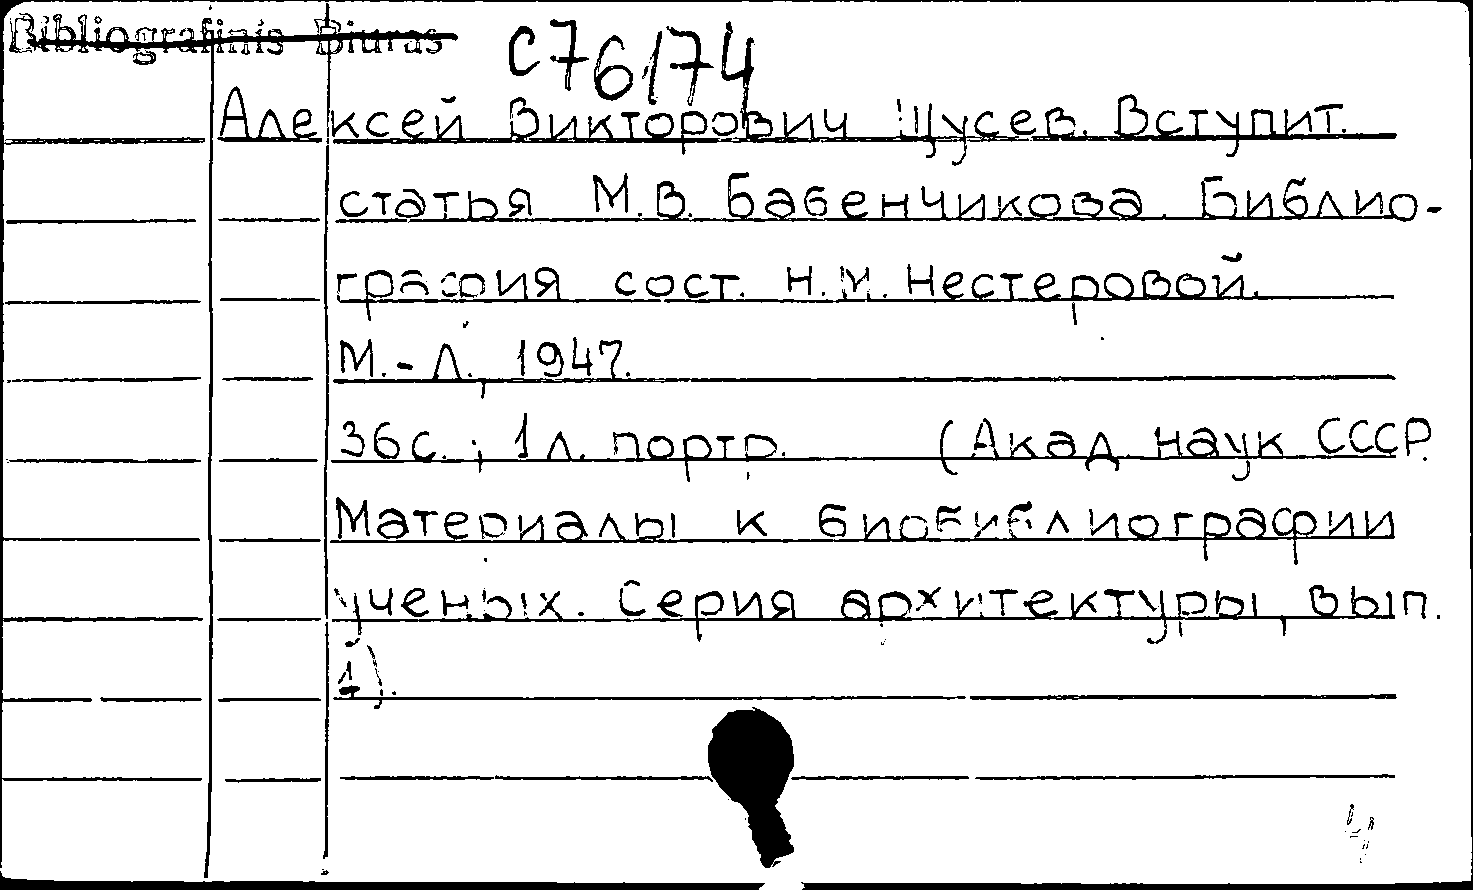 Bibliografinis Biuras
C76174
Алексей Викторович Щусев. Вступит.
статья М.В. Бабенчикова. Библио-
графия сост. Н.М. Нестеровой.
М.-Л., 1947.
36с.; 1л. портр. (Акад. наук СССР.
Материалы к биобиблиографии
ученых. Серия архитектуры, вып.
1).